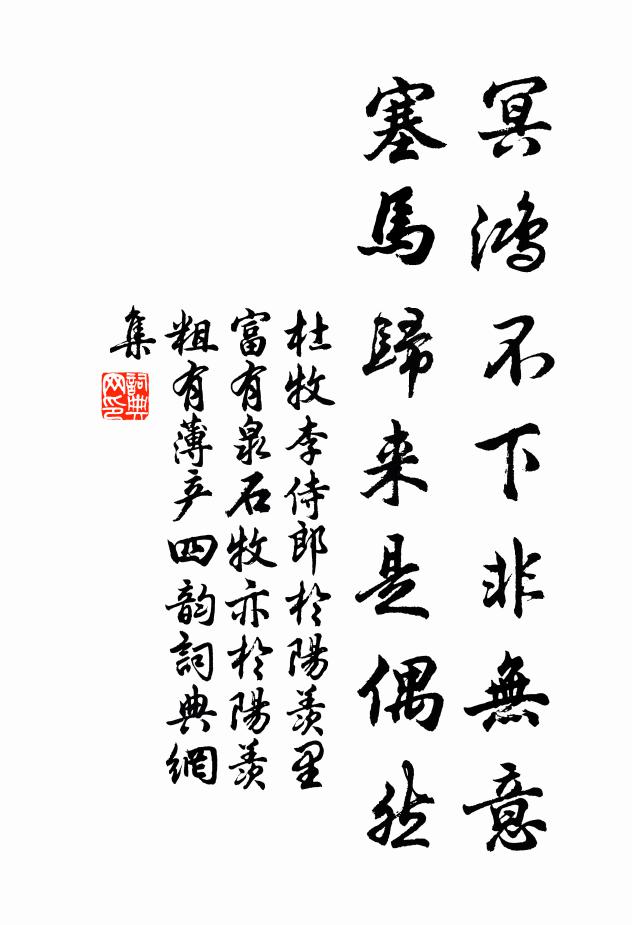 冥鴻不下非無意
塞馬歸来是偶然
杜牧李侍郎於陽羨里
富有泉石牧亦於陽羨
粗有薄产四韵詞典網
集
詞典网印